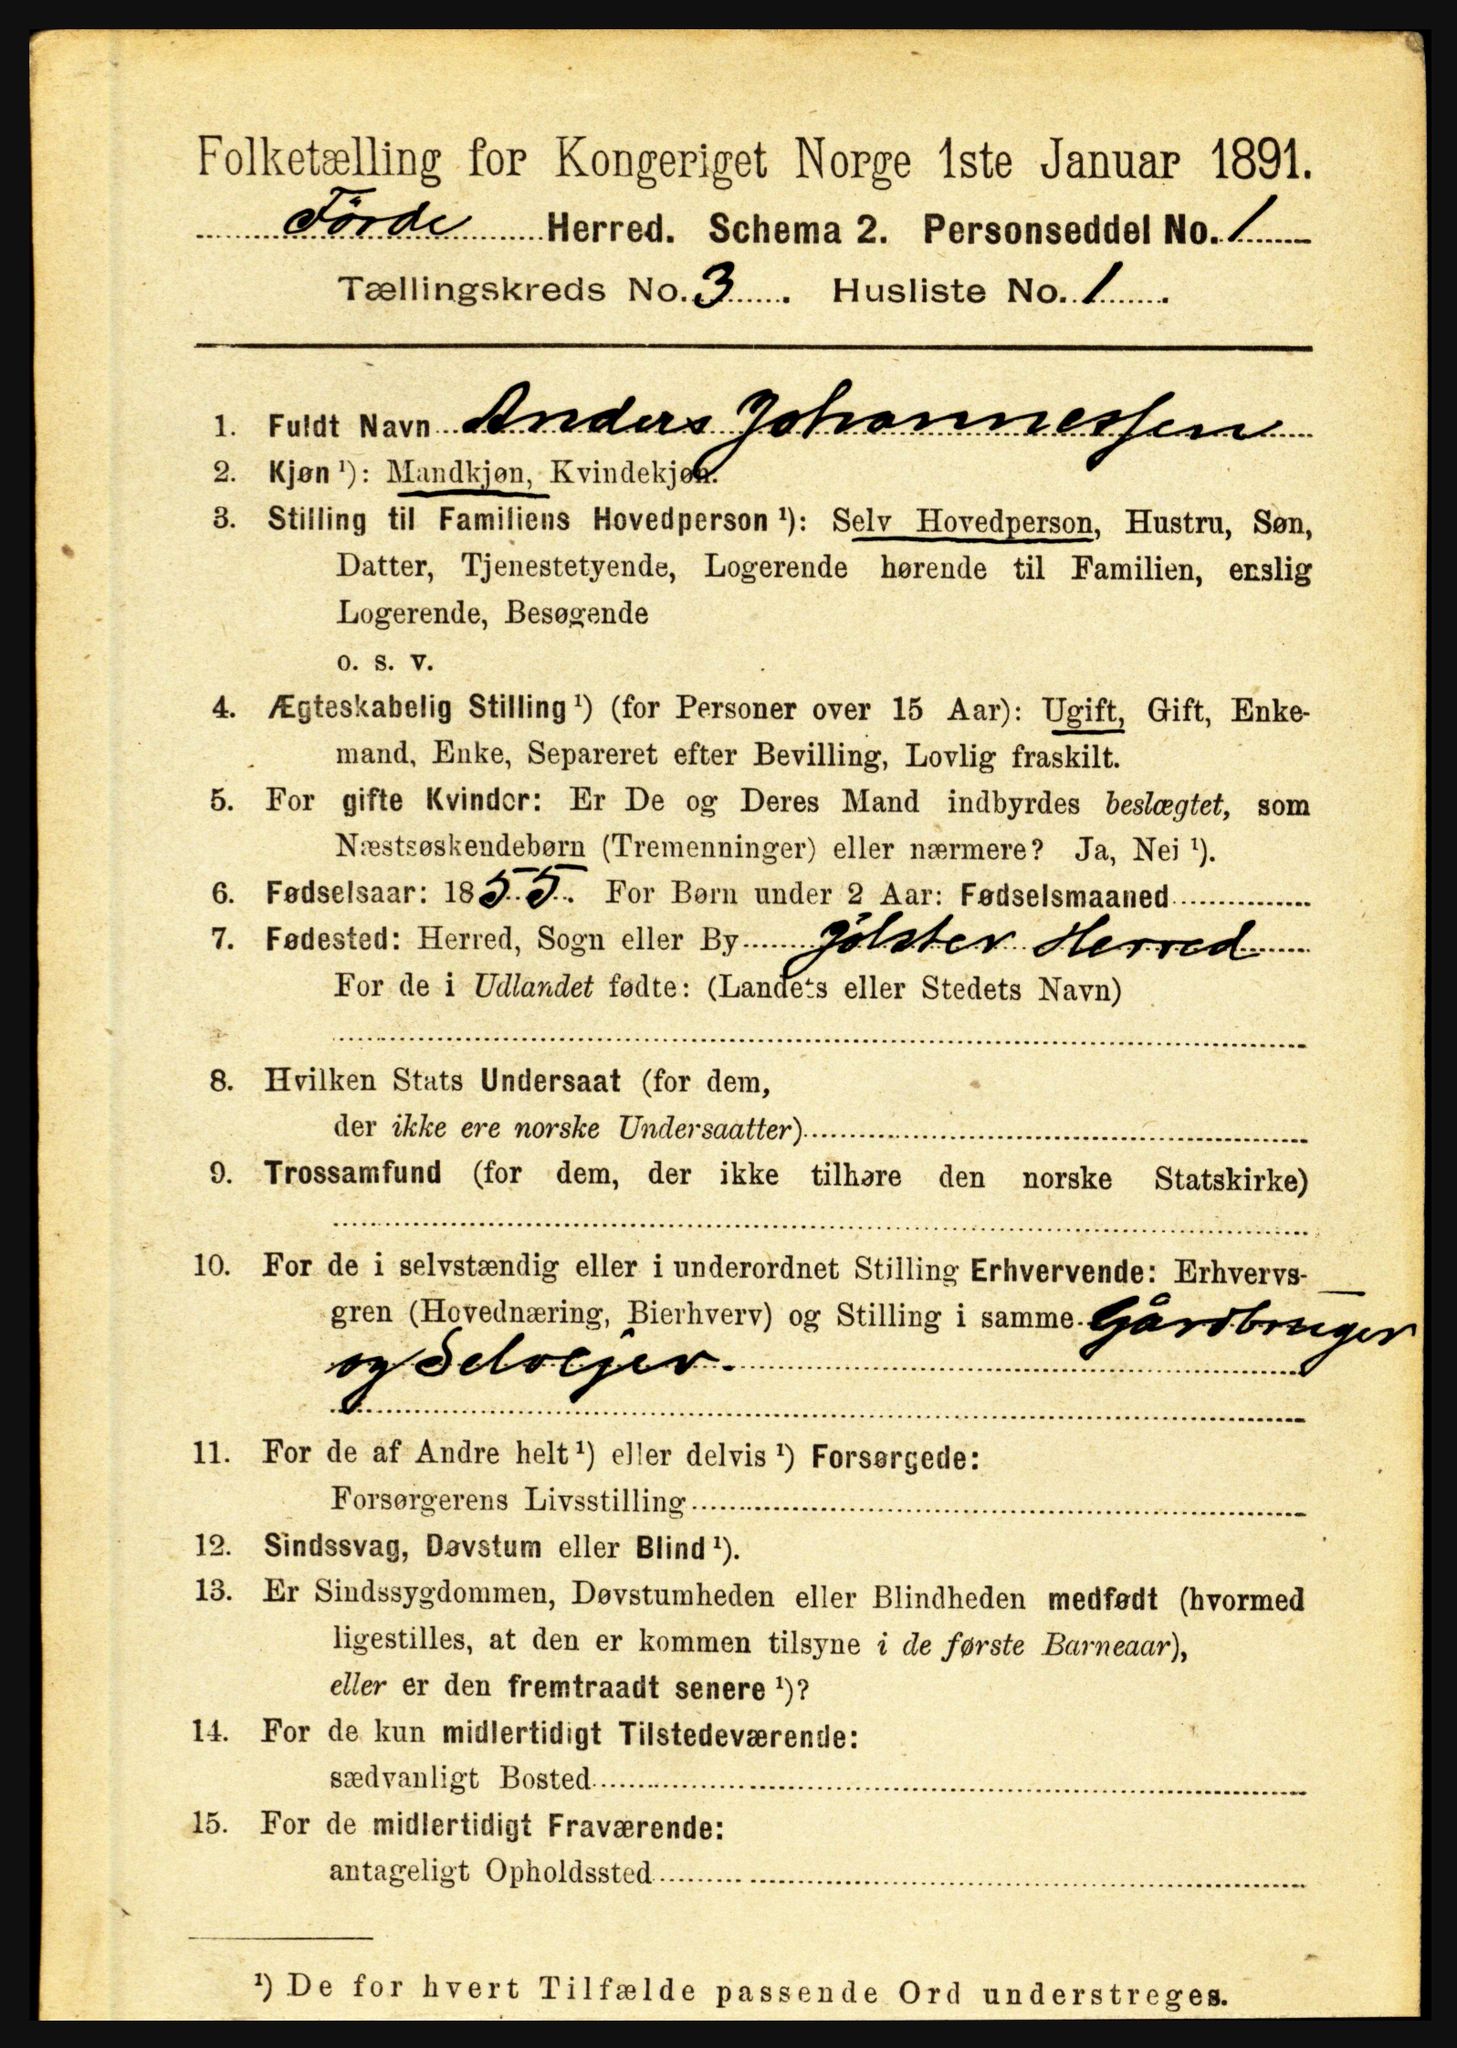 Folketælling for Kongeriget Norge 1ste Januar 1891.
Förde Herred. Schema 2. Personseddel No. 1
Tællingskreds No. 3. Husliste No. 1.
1. Fuldt Navn Anders Johannessen
2. Kjøn ¹): Mandkjøn, Kvindekjøn.
3. Stilling til Familiens Hovedperson ¹): Selv Hovedperson, Hustru, Søn,
Datter, Tjenestetyende, Logerende hørende til Familien, enslig
Logerende, Besøgende
o. s. v.
4. Ægteskabelig Stilling ¹) (for Personer over 15 Aar): Ugift, Gift, Enke-
mand, Enke, Separeret efter Bevilling, Lovlig fraskilt.
5. For gifte Kvinder: Er De og Deres Mand indbyrdes beslægtet, som
Næstsøskendebørn (Tremenninger) eller nærmere? Ja, Nei ¹).
6. Fødselsaar: 1855. For Børn under 2 Aar: Fødselsmaaned
7. Fødested: Herred, Sogn eller By Jölster Herred
For de i Udlandet fødte: (Landets eller Stedets Navn)
8. Hvilken Stats Undersaat (for dem,
der ikke ere norske Undersaatter)
9. Trossamfund (for dem, der ikke tilhøre den norske Statskirke)
10. For de i selvstændig eller i underordnet Stilling Erhvervende: Erhvervs-
gren (Hovednæring, Bierhverv) og Stilling i samme Gårdbruger
og Selvejer.
11. For de af Andre helt ¹) eller delvis ¹) Forsørgede:
Forsørgerens Livsstilling
12. Sindssvag, Døvstum eller Blind ¹).
13. Er Sindssygdommen, Døvstumheden eller Blindheden medfødt (hvormed
ligestilles, at den er kommen tilsyne i de første Barneaar),
eller er den fremtraadt senere ¹)?
14. For de kun midlertidigt Tilstedeværende:
sædvanligt Bosted
15. For de midlertidigt Fraværende:
antageligt Opholdssted
¹) De for hvert Tilfælde passende Ord understreges.